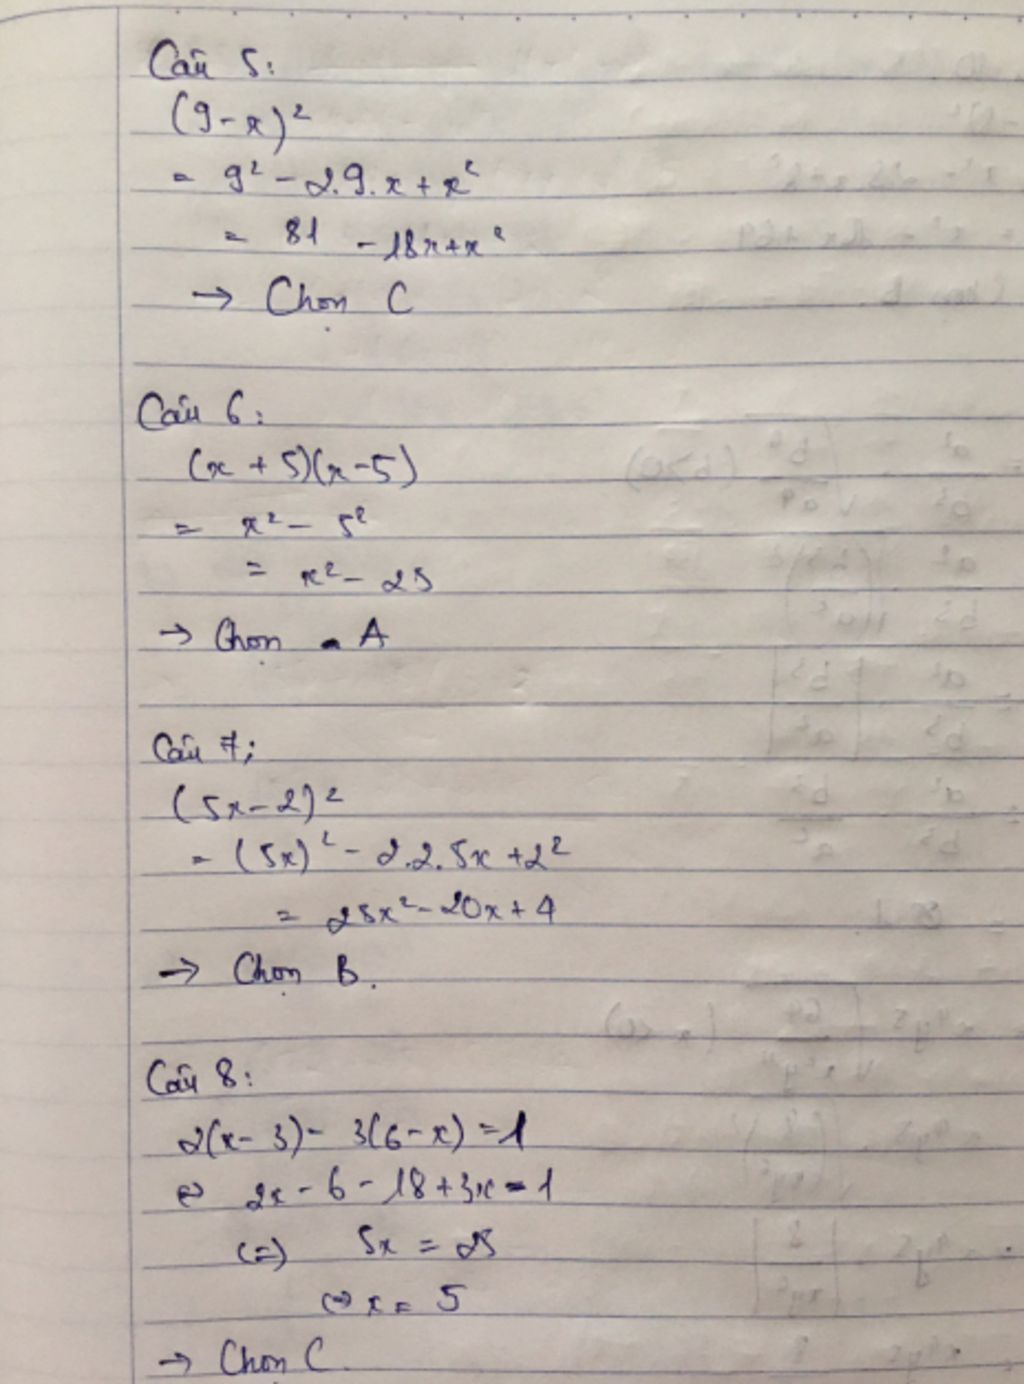 Câu 5:
(9-x)²
= 9² - 2.9.x + x²
= 81 - 18x + x²
→ Chọn C
Câu 6:
(x + 5)(x - 5)
= x² - 5²
= x² - 25
→ Chọn A
Câu 7:
(5x - 2)²
= (5x)² - 2.2.5x + 2²
= 25x² - 20x + 4
→ Chọn B.
Câu 8:
2(x - 3) - 3(6 - x) = 1
⇔ 2x - 6 - 18 + 3x = 1
(=) 5x = 25
⇔ x = 5
→ Chọn C.